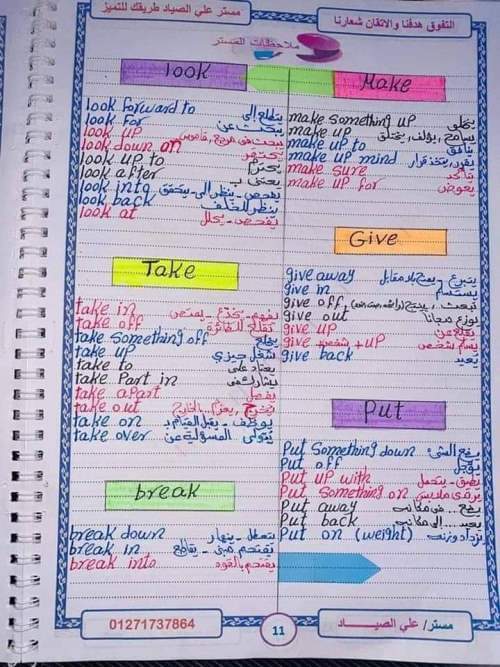 التفوق هدفنا والاتقان شعارنا
مستر علي الصياد طريقك للتميز
ملاحظات المستر
look
look forward to يتطلع إلى
look for يبحث عن
look up يبحث فى مرجع، قاموس
look down on يحتقر
look up to يحترم
look after يعتنى بـ
look into يفحص - ينظر إلى - يتحقق
look back ينظر للخلف
look at يفحص - يحلل
Take
take in يفهم - يخدع - يمتص
take off تقلع للطائرة
take something off يخلع
take up يشغل حيزى
take to يعتاد على
take Part in يشارك فى
take apart يفصل
take out يخرج، يعزم بالخارج
take on يوظف - يقبل القيام بـ
take over يتولى المسؤلية عن
break
break down يتعطل - ينهار
break in يقتحم مبنى - يقاطع
break into يقتحم بالقوه
Make
make something up يختلق
make up يسامح، يؤلف، يختلق
make up to
make up mind يقرر، يتخذ قرار
make sure يتأكد
make up for يعوض
Give
give away يتبرع - يمنح بلا مقابل
give in يستسلم
give off تبعث، ينتج
give out يوزع مجانا
give up يقلع عن
give + شخص + up يسلم شخص
give back يعيد
Put
Put Something down يضع الشئ
Put off يؤجل
Put up with يطيق - يتحمل
Put Something on يرتدى ملابس
Put away يضع... فى مكانه
Put back يعيد... إلى مكانه
Put on (weight) يزداد وزنه
مستر/ علي الصيـــاد
11
01271737864